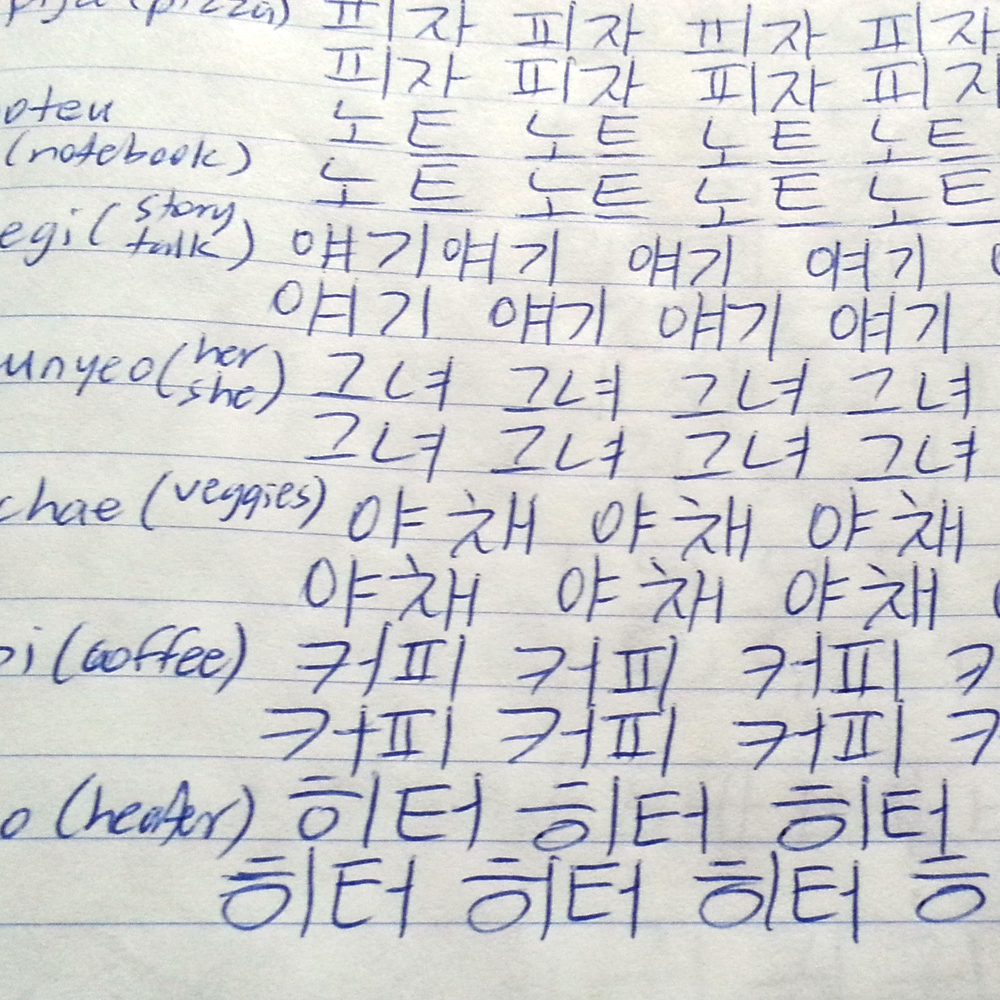 pija (pizza) 피자 피자 피자 피자
피자 피자 피자 피자
oteu 노트 노트 노트 노트
(notebook) 노트 노트 노트 노트
egi (story talk) 얘기 얘기 얘기 얘기
얘기 얘기 얘기 얘기
unyeo (her she) 그녀 그녀 그녀 그녀
그녀 그녀 그녀 그녀
chae (veggies) 야채 야채 야채
야채 야채 야채
pi (coffee) 커피 커피 커피 커
커피 커피 커피 커
o (heater) 히터 히터 히터
히터 히터 히터 히